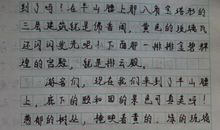 到了吗！在半山腰上那八角宝塔形的
三层建筑就是佛香阁，黄色的琉璃瓦
还闪闪发光呢！下面那一排排金碧辉
煌的宫殿，就是排云殿。
游客们，现在我们来到了半山腰
上，底下的颐和园的景色可真美呀！
葱郁的树丛，掩映着黄的、绿的琉璃